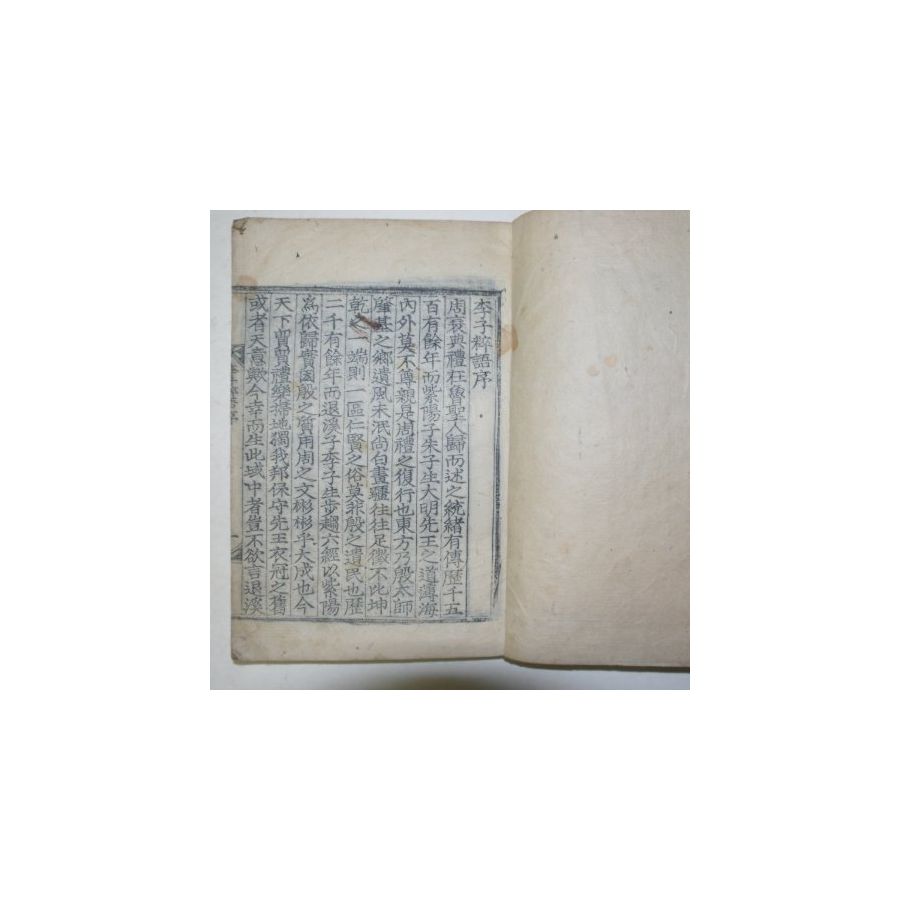 李子粹語序
周衰典禮在魯聖人歸而述之統緒有傳歷千五
百有餘年而紫陽子朱子生大明先王之道薄海
內外莫不尊親是周禮之復行也東方乃殷太師
肇基之鄉遺風未泯尚白畫疆往往足徵不比坤
乾之一端則一區仁賢之俗莫非殷之遺民也歷
二千有餘年而退溪子李子生步趨六經以紫陽
爲依歸實因殷之質用周之文彬彬乎大成也今
天下貿貿禮變掃地獨我邦保守先王衣冠之舊
或者天意歟今幸而生此域中者豈不欲言退溪